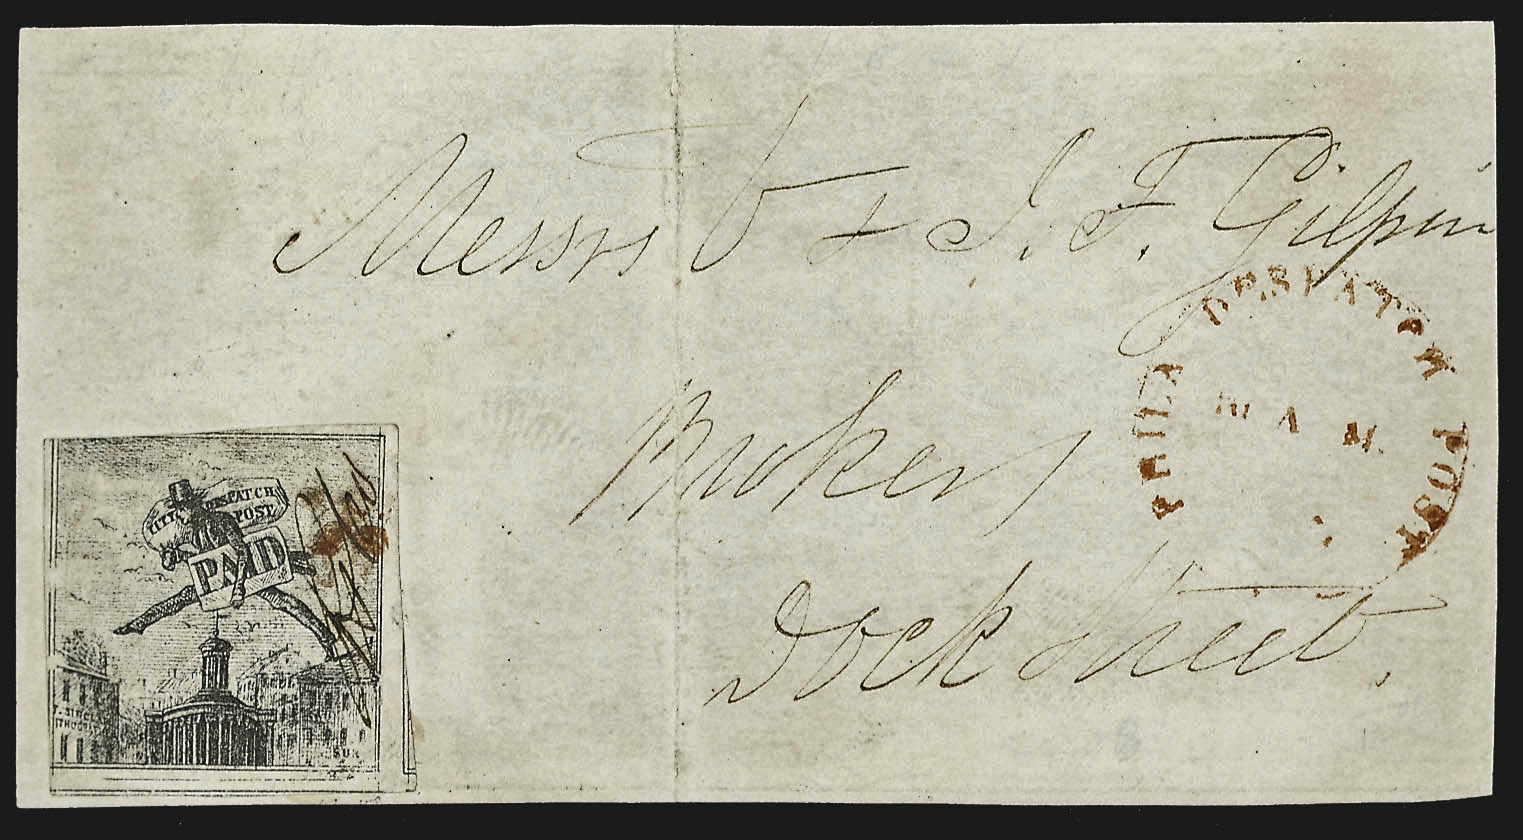 Messrs V & J. F. Gilpin
Brokers
Dock Street.
PHILA DESPATCH POST
10 A M.
CITY DESPATCH
POST
PAID